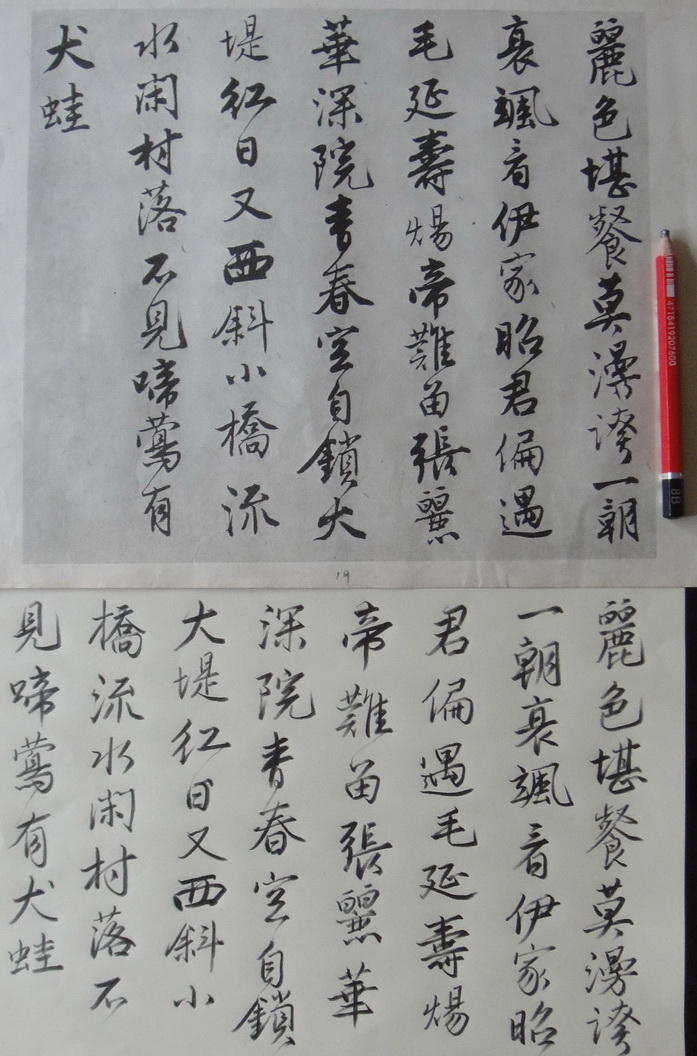 麗色堪餐莫漫誇一朝
衰颯看伊家昭君偏遇
毛延壽煬帝難留張麗
華深院青春空自鎖大
堤紅日又西斜小橋流
水閑村落不見啼鶯有
犬蛙
19
4715419207600
8B
麗色堪餐莫漫誇
一朝衰颯看伊家昭
君偏遇毛延壽煬
帝難留張麗華
深院青春空自鎖
大堤紅日又西斜小
橋流水閑村落不
見啼鶯有犬蛙